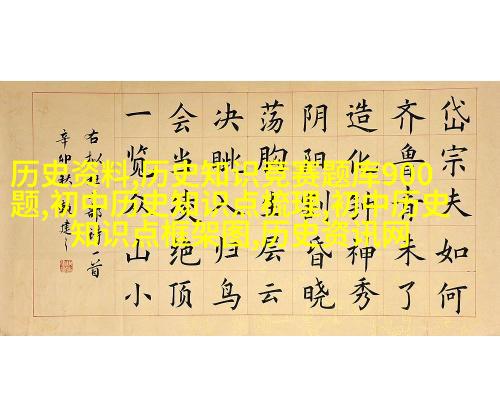 岱宗夫如何
齐鲁青未了
造化钟神秀
阴阳割昏晓
荡胸生层云
决眦入归鸟
会当凌绝顶
一览众山小
右部诗一首
辛卯秋
历史资料,历史知识竞赛题库900
题,初中历史知识点梳理,初中历史
知识点框架图,历史资讯网